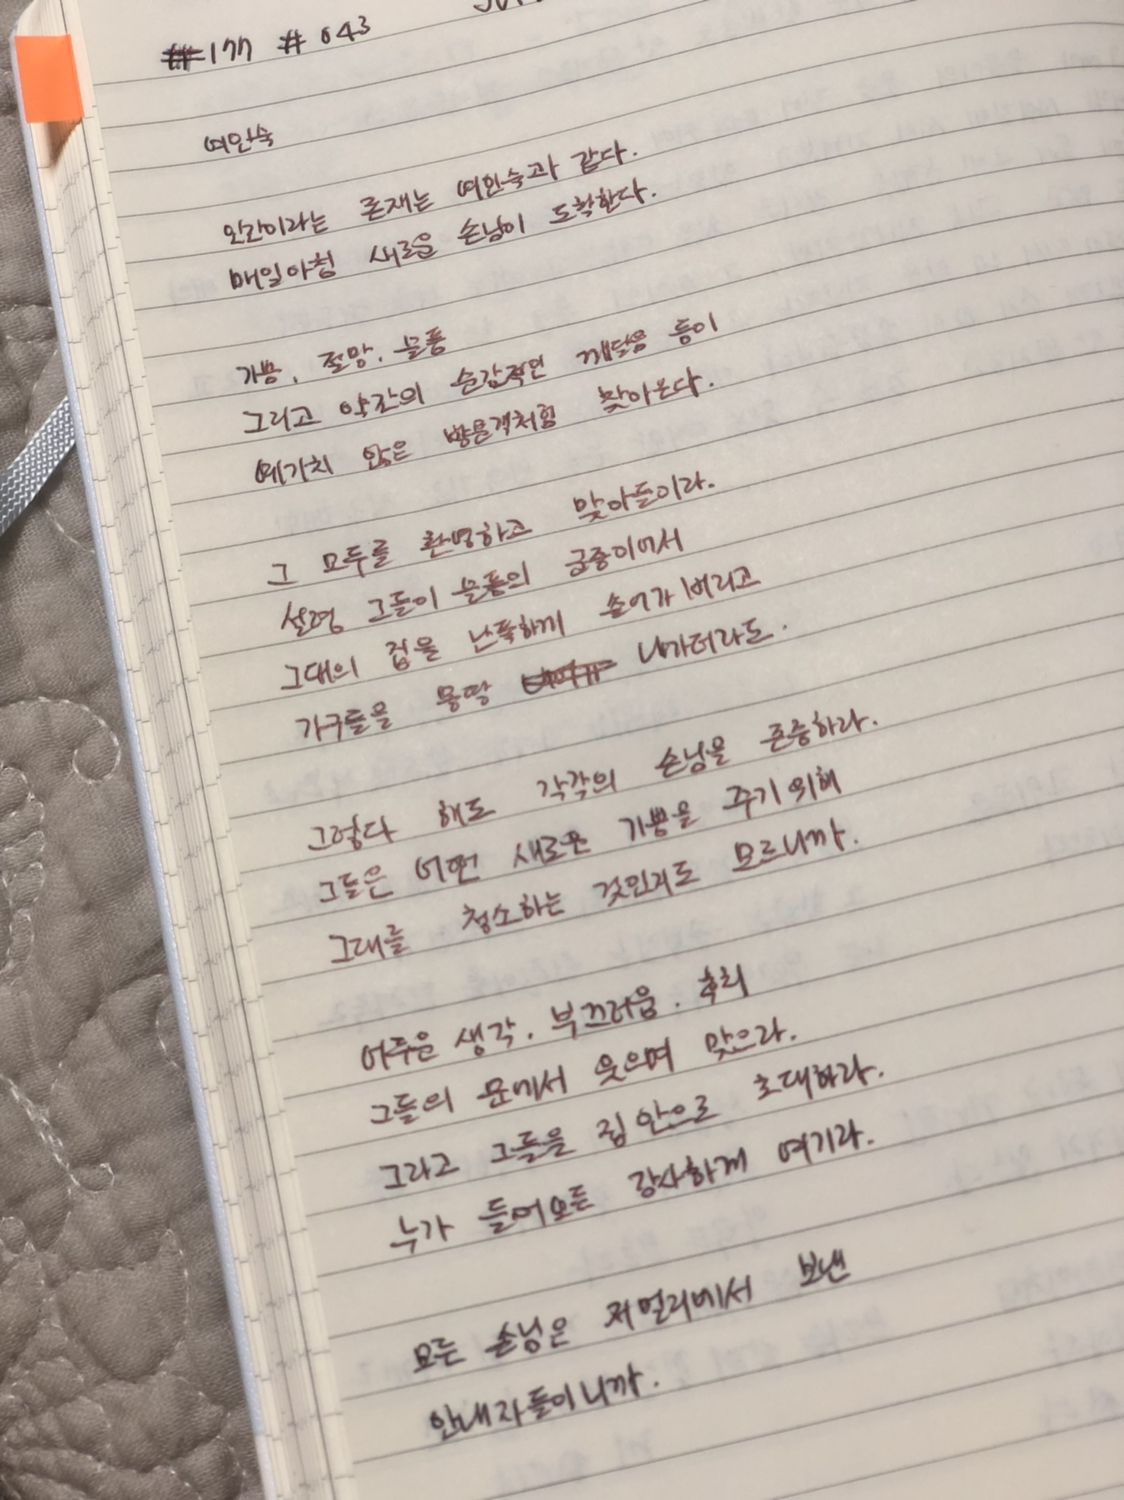 #177 #043
여인숙
인간이라는 존재는 여인숙과 같다.
매일아침 새로운 손님이 도착한다.
기쁨, 절망, 슬픔
그리고 약간의 순간적인 깨달음 등이
예기치 않은 방문객처럼 찾아온다.
그 모두를 환영하고 맞아들이라.
설령 그들이 슬픔의 군중이어서
그대의 집을 난폭하게 쓸어가 버리고
가구들을 몽땅 내가더라도.
그렇다 해도 각각의 손님을 존중하라.
그들은 어떤 새로운 기쁨을 주기 위해
그대를 청소하는 것인지도 모르니까.
어두운 생각, 부끄러움, 후회
그들의 문에서 웃으며 맞으라.
그리고 그들을 집 안으로 초대하라.
누가 들어오든 감사하게 여기라.
모든 손님은 저멀리에서 보낸
안내자들이니까.